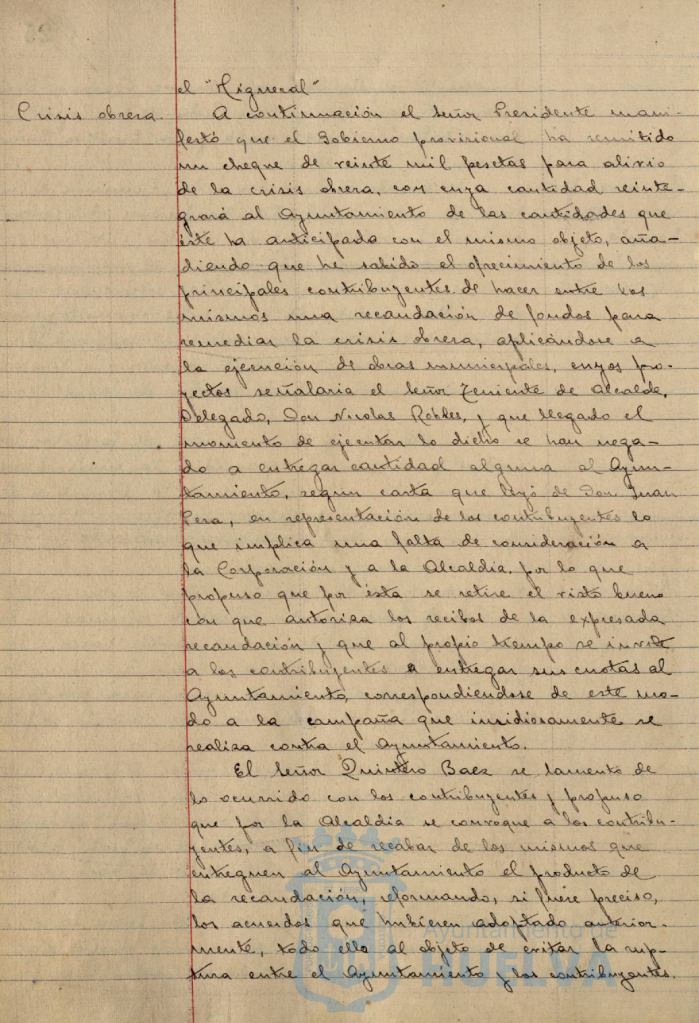 el "Higueral"
Crisis obrera. A continuación el Señor Presidente mani-
festó que el Gobierno provisional ha remitido
un cheque de veinte mil pesetas para alivio
de la crisis obrera, con cuya cantidad reinte-
grará al Ayuntamiento de las cantidades que
éste ha anticipado con el mismo objeto, aña-
diendo que he sabido el ofrecimiento de los
principales contribuyentes de hacer entre los
mismos una recaudación de fondos para
remediar la crisis obrera, aplicándose a
la ejecución de obras municipales, cuyos pro-
yectos señalaria el Señor Teniente de Alcalde,
Delegado, Don Nicolas Robles, y que llegado el
momento de ejecutar lo dicho se han nega-
do a entregar cantidad alguna al Ayun-
tamiento, segun carta que leyó de Don Juan
en representación de los contribuyentes lo
que implica una falta de consideración a
la Corporación y a la Alcaldia, por lo que
propuso que por ésta se retire el visto bueno
con que autoriza los recibos de la expresada
recaudación y que al propio tiempo se invite
a los contribuyentes a entregar sus cuotas al
Ayuntamiento, correspondiendose de este mo-
do a la campaña que insidiosamente se
realiza contra el Ayuntamiento.
El Señor Quintero Baez se lamentó de
lo ocurrido con los contribuyentes y propuso
que por la Alcaldia se convoque a los contribu-
yentes, a fin de recabar de los mismos que
entreguen al Ayuntamiento el producto de
la recaudación, reformando, si fuere preciso,
los acuerdos que hubieren adoptado anterior-
mente, todo ello al objeto de evitar la rup-
tura entre el Ayuntamiento y los contribuyentes.
Ayuntamiento de
HUELVA